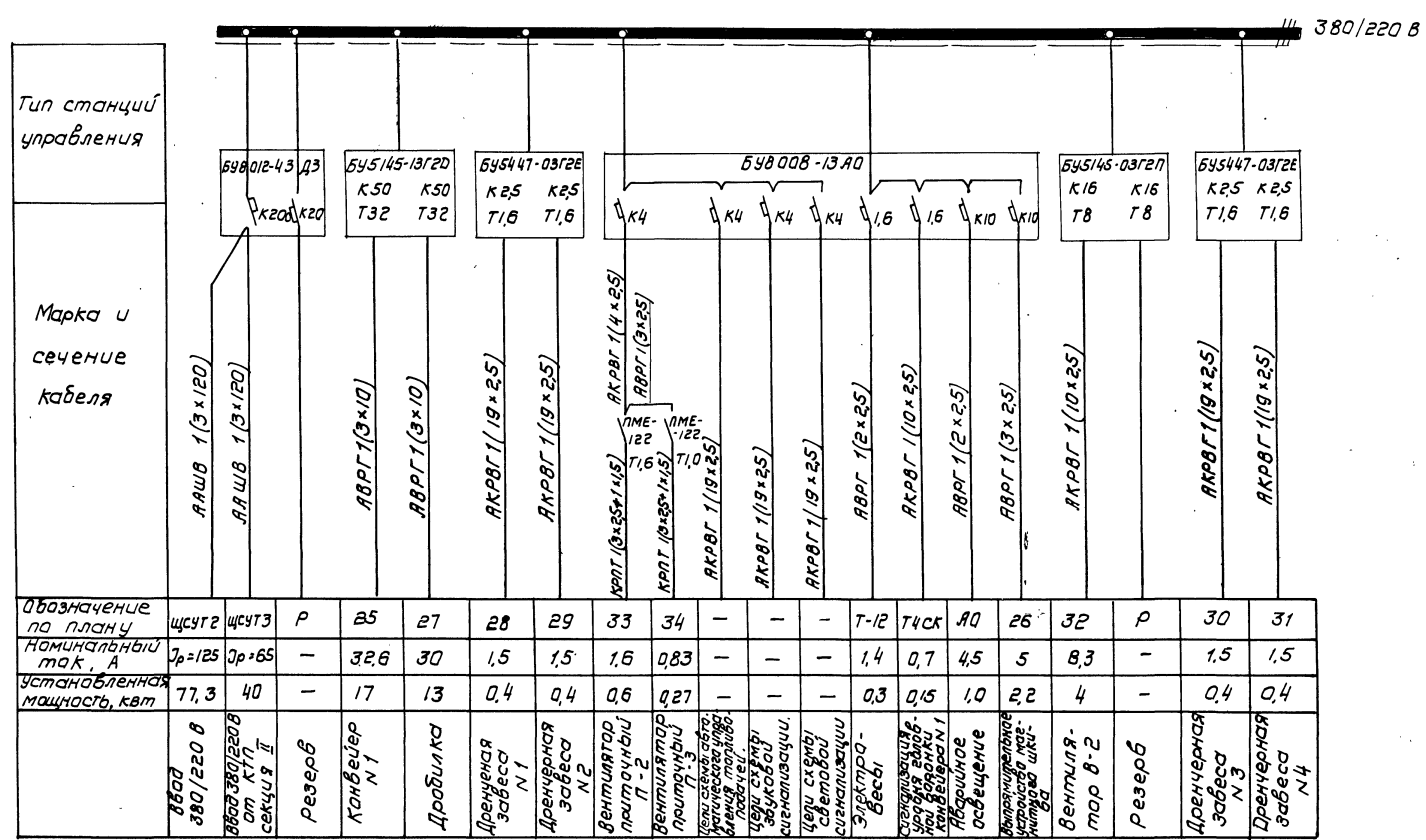 380/220 В
Тип станций
управления
БУ8012-43 Д3
К20б К20
БУ5145-13Г2D
К50 К50
Т32 Т32
БУ5447-03Г2Е
К2,5 К2,5
Т1,6 Т1,6
БУ8008-13А0
К4 К4 К4 К4 1,6 1,6 К10 К10
БУ5145-03Г2П
К16 К16
Т8 Т8
БУ5447-03Г2Е
К2,5 К2,5
Т1,6 Т1,6
Марка и
сечение
кабеля
ААШВ 1(3×120)
ААШВ 1(3×120)
АВРГ 1(3×10)
АВРГ 1(3×10)
АКРВГ 1(19×2,5)
АКРВГ 1(19×2,5)
АКРВГ 1(4×2,5)
АВРГ 1(3×2,5)
ПМЕ-
122
Т1,6
ПМЕ-
-122
Т1,0
КРПТ 1(3×2,5+1×1,5)
КРПТ 1(3×2,5+1×1,5)
АКРВГ 1(19×2,5)
АКРВГ 1(19×2,5)
АКРВГ 1(19×2,5)
АВРГ 1(2×2,5)
АКРВГ 1(10×2,5)
АВРГ 1(2×2,5)
АВРГ 1(3×2,5)
АКРВГ 1(10×2,5)
АКРВГ 1(19×2,5)
АКРВГ 1(19×2,5)
Обозначение
по плану
ЩСУТ2 ЩСУТ3 Р 25 27 28 29 33 34 — — — Т-12 Т4СК А0 26 32 Р 30 31
Номинальный
ток, А
Јр=125 Јр=65 — 32,6 30 1,5 1,5 1,6 0,83 — — — 1,4 0,7 4,5 5 8,3 — 1,5 1,5
Установленная
мощность, квт
77,3 40 — 17 13 0,4 0,4 0,6 0,27 — — — 0,3 0,15 1,0 2,2 4 — 0,4 0,4
Ввод
380/220 В
Ввод 380/220В
от КТП
секция II
Резерв
Конвейер
N 1
Дробилка
Дренченая
завеса
N 1
Дренчерная
завеса
N 2
Вентилятор
приточный
П-2
Вентилятор
приточный
П-3
Цепи схемы авто-
матического упра-
вления топливо-
подачей.
Цепи схемы
звуковой
сигнализации.
Цепи схемы
световой
сигнализации
Электро-
весы
Сигнализация
уровня голов-
ной воронки
конвейера N 1
Аварийное
освещение
Выпрямительное
устройство маг-
нитного шки-
ва
Вентиля-
тор В-2
Резерв
Дренчерная
завеса
N 3
Дренчерная
завеса
N 4